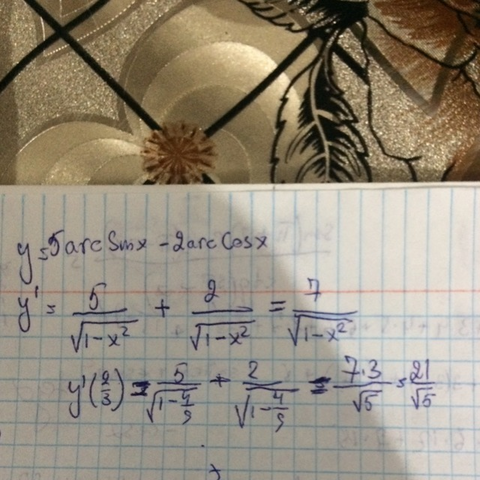 y = 5 arc Sin x - 2 arc Cos x
y' = 5/√(1-x²) + 2/√(1-x²) = 7/√(1-x²)
y'(2/3) = 5/√(1-4/9) + 2/√(1-4/9) = 7·3/√5 = 21/√5